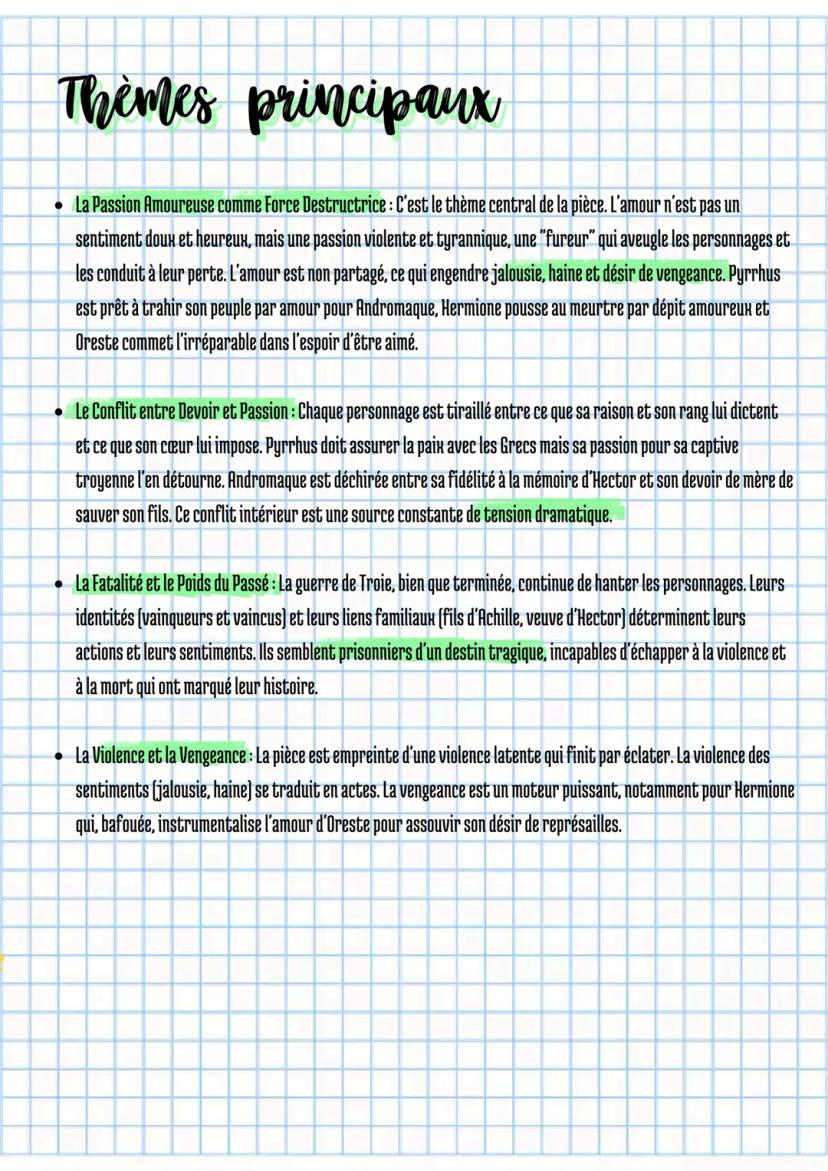 Thèmes principaux
• La Passion Amoureuse comme Force Destructrice : C'est le thème central de la pièce. L'amour n'est pas un
sentiment doux et heureux, mais une passion violente et tyrannique, une "fureur" qui aveugle les personnages et
les conduit à leur perte. L'amour est non partagé, ce qui engendre jalousie, haine et désir de vengeance. Pyrrhus
est prêt à trahir son peuple par amour pour Andromaque, Hermione pousse au meurtre par dépit amoureux et
Oreste commet l'irréparable dans l'espoir d'être aimé.
• Le Conflit entre Devoir et Passion : Chaque personnage est tiraillé entre ce que sa raison et son rang lui dictent
et ce que son cœur lui impose. Pyrrhus doit assurer la paix avec les Grecs mais sa passion pour sa captive
troyenne l'en détourne. Andromaque est déchirée entre sa fidélité à la mémoire d'Hector et son devoir de mère de
sauver son fils. Ce conflit intérieur est une source constante de tension dramatique.
• La Fatalité et le Poids du Passé : La guerre de Troie, bien que terminée, continue de hanter les personnages. Leurs
identités (vainqueurs et vaincus) et leurs liens familiaux (fils d'Achille, veuve d'Hector) déterminent leurs
actions et leurs sentiments. Ils semblent prisonniers d'un destin tragique, incapables d'échapper à la violence et
à la mort qui ont marqué leur histoire.
• La Violence et la Vengeance : La pièce est empreinte d'une violence latente qui finit par éclater. La violence des
sentiments (jalousie, haine) se traduit en actes. La vengeance est un moteur puissant, notamment pour Hermione
qui, bafouée, instrumentalise l'amour d'Oreste pour assouvir son désir de représailles.